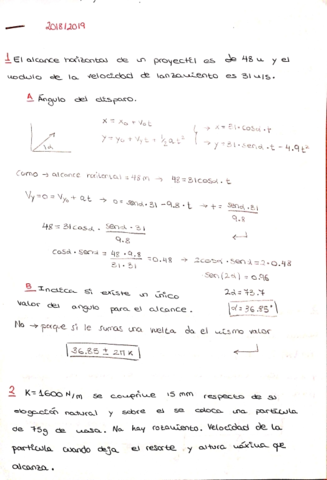 2018/2019
1 El alcance horizontal de un proyectil es de 48 m y el
modulo de la velocidad de lanzamiento es 31 m/s.
A Ángulo del disparo.
x = x₀ + v₀t → x = 31·cosα·t
y = y₀ + v₁t + ½at² → y = 31·senα·t - 4.9t²
α
como → alcance horizontal = 48m → 48 = 31cosα·t
Vy = 0 = Vy₀ + at → 0 = senα·31 - 9.8·t → t = senα·31 / 9.8
48 = 31cosα · senα·31 / 9.8
cosα·senα = 48·9.8 / 31·31 = 0.48 → 2cosα·senα = 2·0.48
sen(2α) = 0.96
B Indica si existe un único 2α = 73.7
valor del angulo para el alcance. α = 36.85°
No → porque si le sumas una vuelta da el mismo valor
36.85 ± 2πk
2 K=1600 N/m se comprime 15 mm respecto de su
elogación natural y sobre el se coloca una particula
de 75g de masa. No hay rozamiento. Velocidad de la
particula cuando deja el resorte y altura máxima que
alcanza.